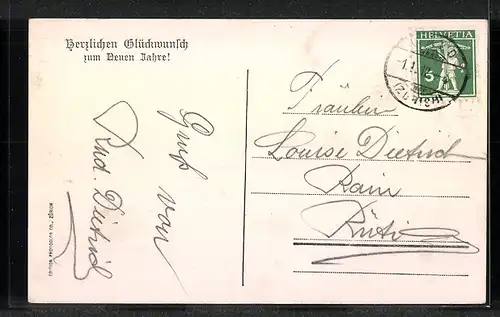 Herzlichen Glückwunsch
zum Neuen Jahre!
Gruß von
Rud. Dietrich
HELVETIA
5
Fräulein
Louise Dietrich
Rain
Rüti